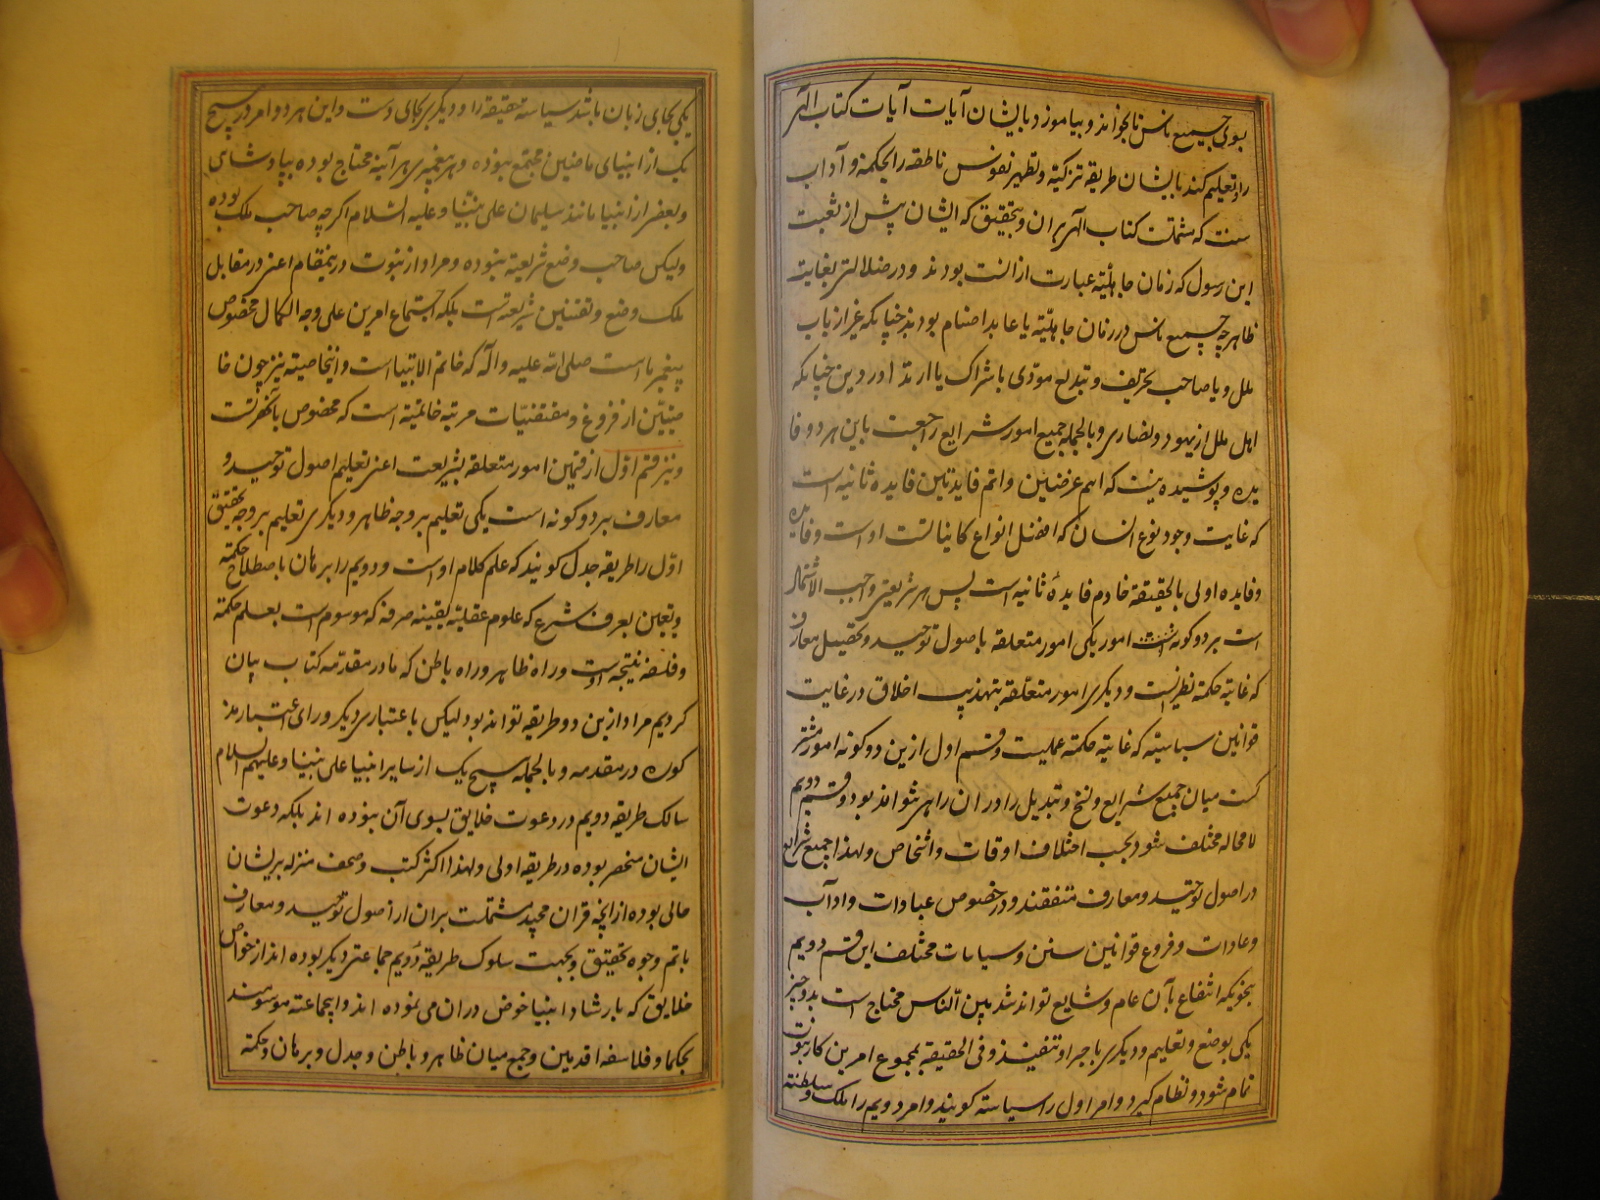 بسوی جمیع ناس تا بخواند و بیاموزد بایشان آیات آیات کتاب الهی
را و تعلیم کند بایشان طریقه تزکیه و تطهیر نفوس ناطقه را بحکمة و آداب
سنت که مشتملست کتاب الهی بر ان و بتحقیق که ایشان پیش از بعثت
این رسول که زمان جاهلیّته عبارت از انست بودند و در ضلالتی بغایت
ظاهر چه جمیع ناس در زمان جاهلیّته یا عابد اصنام بودند چنانکه غیر ارباب
ملل و یا صاحب تحریف و تبدیع مودّی باشراک یا ارتداد در دین چنانکه
اهل ملل از یهود و نصاری و بالجمله جمیع امور شرایع راجعست باین هر دو فا
یده و پوشیده نیست که اهم غرضین و اتم فایدتین فایدهٔ ثانیه است
که غایت وجود نوع انسان که افضل انواع کایناتست او است و فایده
و فایده اولی بالحقیقة خادم فایدهٔ ثانیه است پس هر شریعتی واجب الاشتمال
است بر دو کونه امور یکی امور متعلقه باصول توحید و تحصیل معارف
که غایته حکمة نظریست و دیکری امور متعلّقه بتهذیب اخلاق در غایت
قوانین سیاسیته که غایته حکمة عملیت و قسم اول ازین دو کونه امور مشتر
کست میان جمیع شرایع و نسخ و تبدیل را در ان راهی نتواند بود و قسم دویم
لا محاله مختلف شود بحسب اختلاف اوقات و اشخاص و لهذا جمیع شرایع
در اصول توحید و معارف متفقند و در خصوص عبادات و اداب
و عادات و فروع قوانین سنن و سیاسات مختلف این قسم دویم
بنحویکه انتفاع بآن عام و شایع تواند شد بین النّاس محتاج است بدو چیز
یکی بوضع و تعلیم و دیکری باجبر او تنفیذ و فی الحقیقة بمجموع امرین کار نبوت
تمام شود و نظام کیرد و امر اول را سیاسته کویند و امر دویم را ملک و سلطنته
یکی بجای زبان باشد سیاسته حقیقة را و دیکری بجای دست و این هر دو امر در هیچ
یک از انبیای ماضین مجتمع نبوده و هر پیغمبری هر آینه محتاج بوده بپادشاهی
و بعضی از انبیا مانند سلیمان علی نبیّنا و علیه السّلام اکرچه صاحب ملک بوده
ولیکن صاحب وضع شریعته نبوده و مراد از نبوت درینمقام اعنی در مقابل
ملک وضع و تقنین شریعتست بلکه اجتماع امرین علی وجه الکمال مخصوص
پیغمبر ماست صلی الله علیه و آله که خاتم الانبیاست و اینخاصیته نیز چون خا
صیتین از فروع و مقتضیّات مرتبه خاتمیّه است که مخصوص بآنحضرتست
و نیز قسم اوّل از قسمین امور متعلقه بشریعت اعنی تعلیم اصول توحید و
معارف بر دو کونه است یکی تعلیم بر وجه ظاهر و دیکری تعلیم بر وجه تحقیق
اوّل را طریقه جدل کویند که علم کلام او است و دویم را برهان باصطلاح حکمة
و یقین بعرف شرع که علوم عقلیّه یقینیه صرفه که موسوم است بعلم حکمة
و فلسفه نتیجه اوست و راه ظاهر و راه باطن که ما در مقدّمه کتاب بیان
کردیم مراد ازین دو طریقه تواند بود لیکن باعتباری دیکر ورای اعتبار مذ
کور در مقدمه و بالجمله هیچ یک از سایر انبیا علی نبیّنا و علیهم السلام
سالک طریقه دویم در دعوت خلایق بسوی آن نبوده اند بلکه دعوت
ایشان منحصر بوده در طریقه اولی و لهذا اکثر کتب و صحف منزله بر ایشان
خالی بوده از آنچه قران مجید مشتملست بران از اصول توحید و معارف
باتم وجوه تحقیق و بجهت سلوک طریقهٔ دویم جماعتی دیکر بوده اند از خواص
خلایق که بارشاد انبیا خوض در ان می نموده اند و اینجماعته موسومند
بحکما و فلاسفه اقدمین و جمع میان ظاهر و باطن و جدل و برهان و حکمة